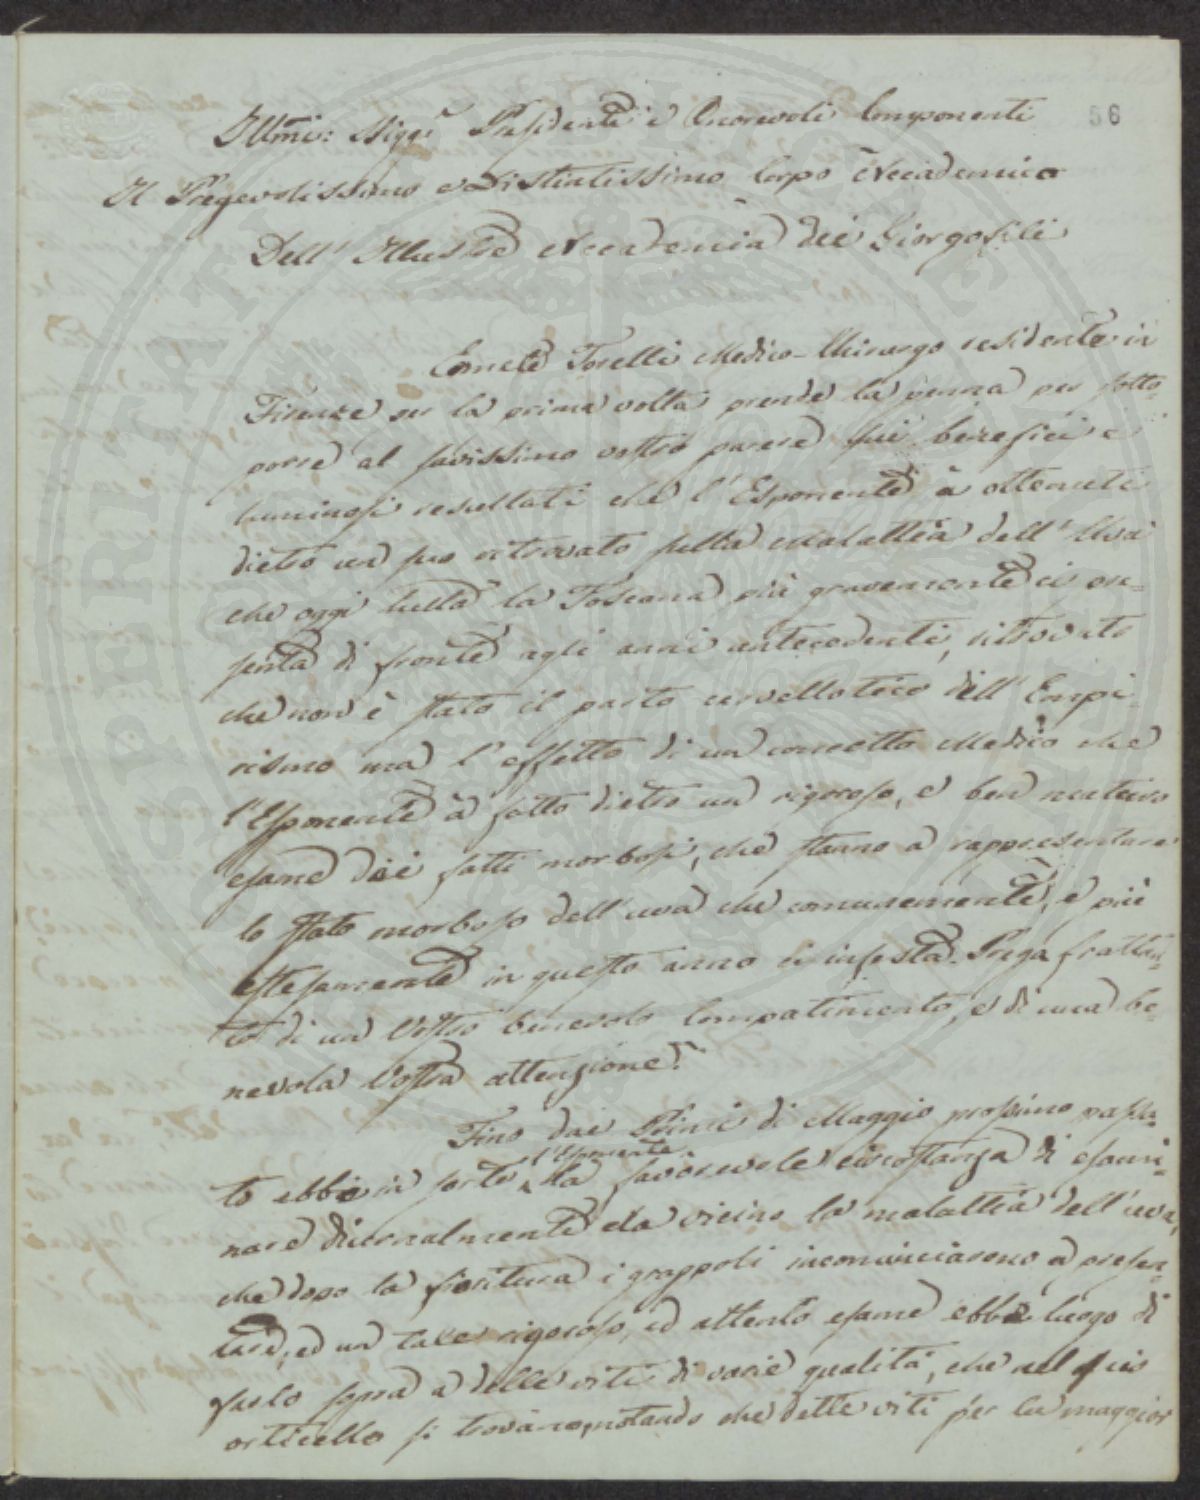 56
Illmi: Sigg.i Presidente e Onorevoli Componenti
Il Pregevolissimo e Distintissimo Corpo Accademico
Dell' Illustre Accademia dei Giorgofili
Torelli Medico-Chirurgo residente in
Firenze per la prima volta prende la penna per sotto-
porre al savissimo vostro parere sui benefici e
luminosi resultati che l'Esponente à ottenuti
dietro un suo ritrovato sulla Malattia dell' Uva
che oggi tutta la Toscana più gravemente ci on-
senta di fronte agli anni antecedenti, ritrovato
che non è stato il parto cervellotico dell' Empi-
rismo ma l'effetto di un concetto Medico che
l'Esponente à fatto dietro un rigoroso, e ben maturo
esame dei fatti morbosi, che stanno a rappresentare
lo stato morboso dell'uva che comunemente, e più
estesamente in questo anno ci infesta. Prega frattan-
to di un Vostro benevolo Compatimento, e di una be-
nevola Vostra attenzione.
Fino dai Primi di Maggio prossimo passa-
to ebbe in sorte l'Esponente la favorevole circostanza di esami-
nare diurnalmente e da vicino la malattia dell'uva,
che dopo la fioritura i grappoli incominciarono a presen-
tare, ed un tale rigoroso, ed attento esame ebbe luogo di
farlo sopra a delle viti di varie qualità, che nel suo
orticello si trovano, notando che dette viti per la maggior